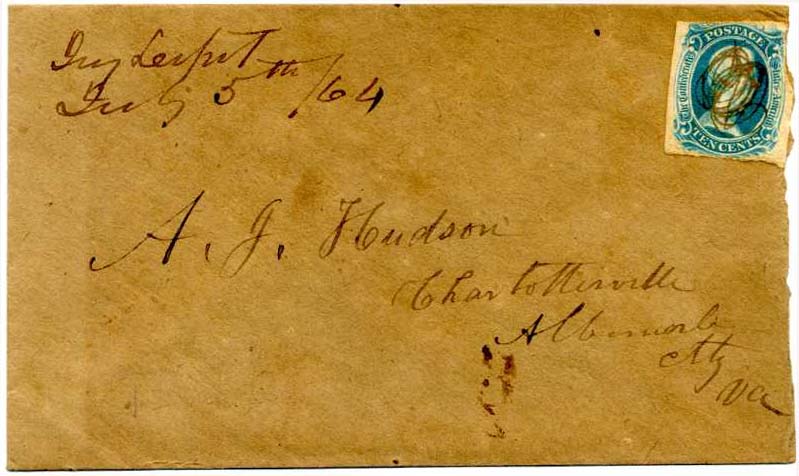 Ivy Depot
July 5th /64
POSTAGE
The Confederate States of America
TEN CENTS
A. J. Hudson
Charlottesville
Albemarle
Cty
Va